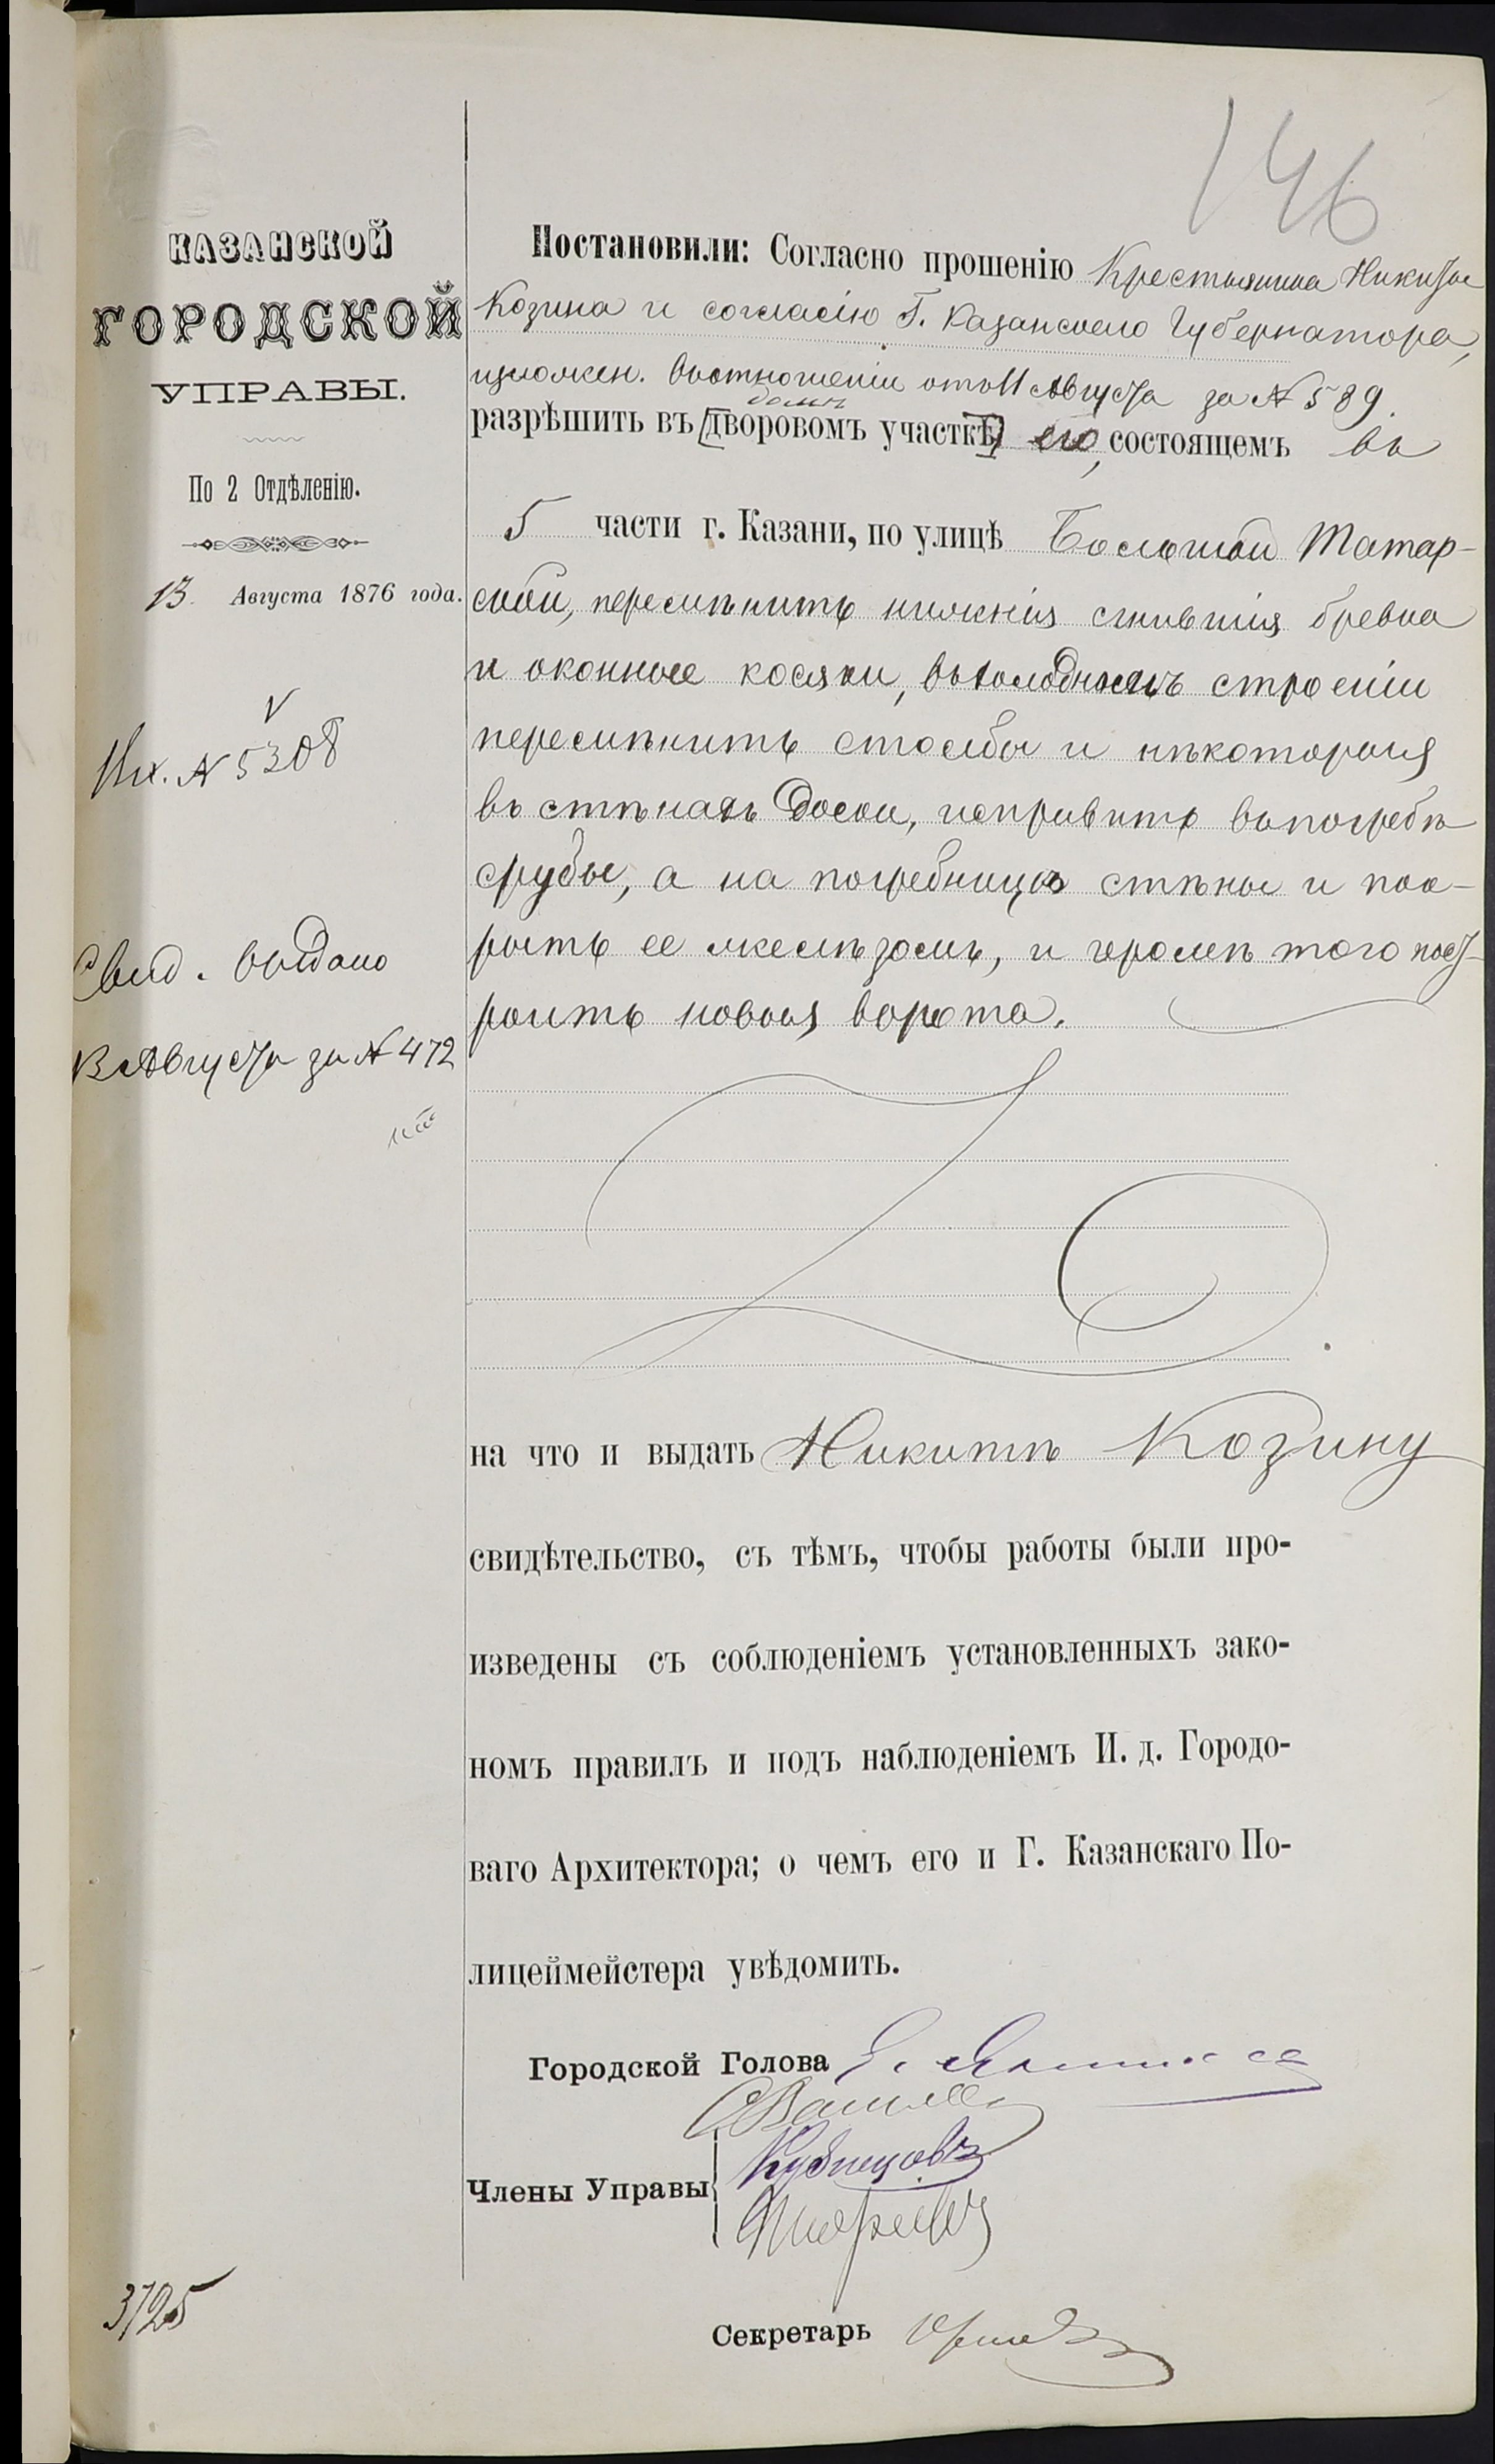 146
КАЗАНСКОЙ
ГОРОДСКОЙ
УПРАВЫ.
По 2 Отдѣленію.
13 Августа 1876 года.
Вх. № 5308
Свид. выдано
13 Августа за № 472
3725
Постановили: Согласно прошенію Крестьянина Никиты
Козина и согласію Г. Казанскаго Губернатора,
изложен. въ отношеніи отъ 11 Августа за № 589.
домѣ
разрѣшить въ [дворовомъ участкѣ] его, состоящемъ въ
5 части г. Казани, по улицѣ Большой Татар-
ской, перемѣнить нижнія сгнившія бревна
и оконные косяки, въ холодномъ строеніи
перемѣнить столбы и нѣкоторыя
въ стѣнахъ доски, исправить въ погребѣ
срубы, а на погребницѣ стѣны и пок-
рыть ее желѣзомъ, и кромѣ того пост-
роить новыя ворота.
на что и выдать Никитѣ Козину
свидѣтельство, съ тѣмъ, чтобы работы были про-
изведены съ соблюденіемъ установленныхъ зако-
номъ правилъ и подъ наблюденіемъ И. д. Городо-
ваго Архитектора; о чемъ его и Г. Казанскаго По-
лицеймейстера увѣдомить.
Городской Голова
Члены Управы
Кузнецовъ
Секретарь